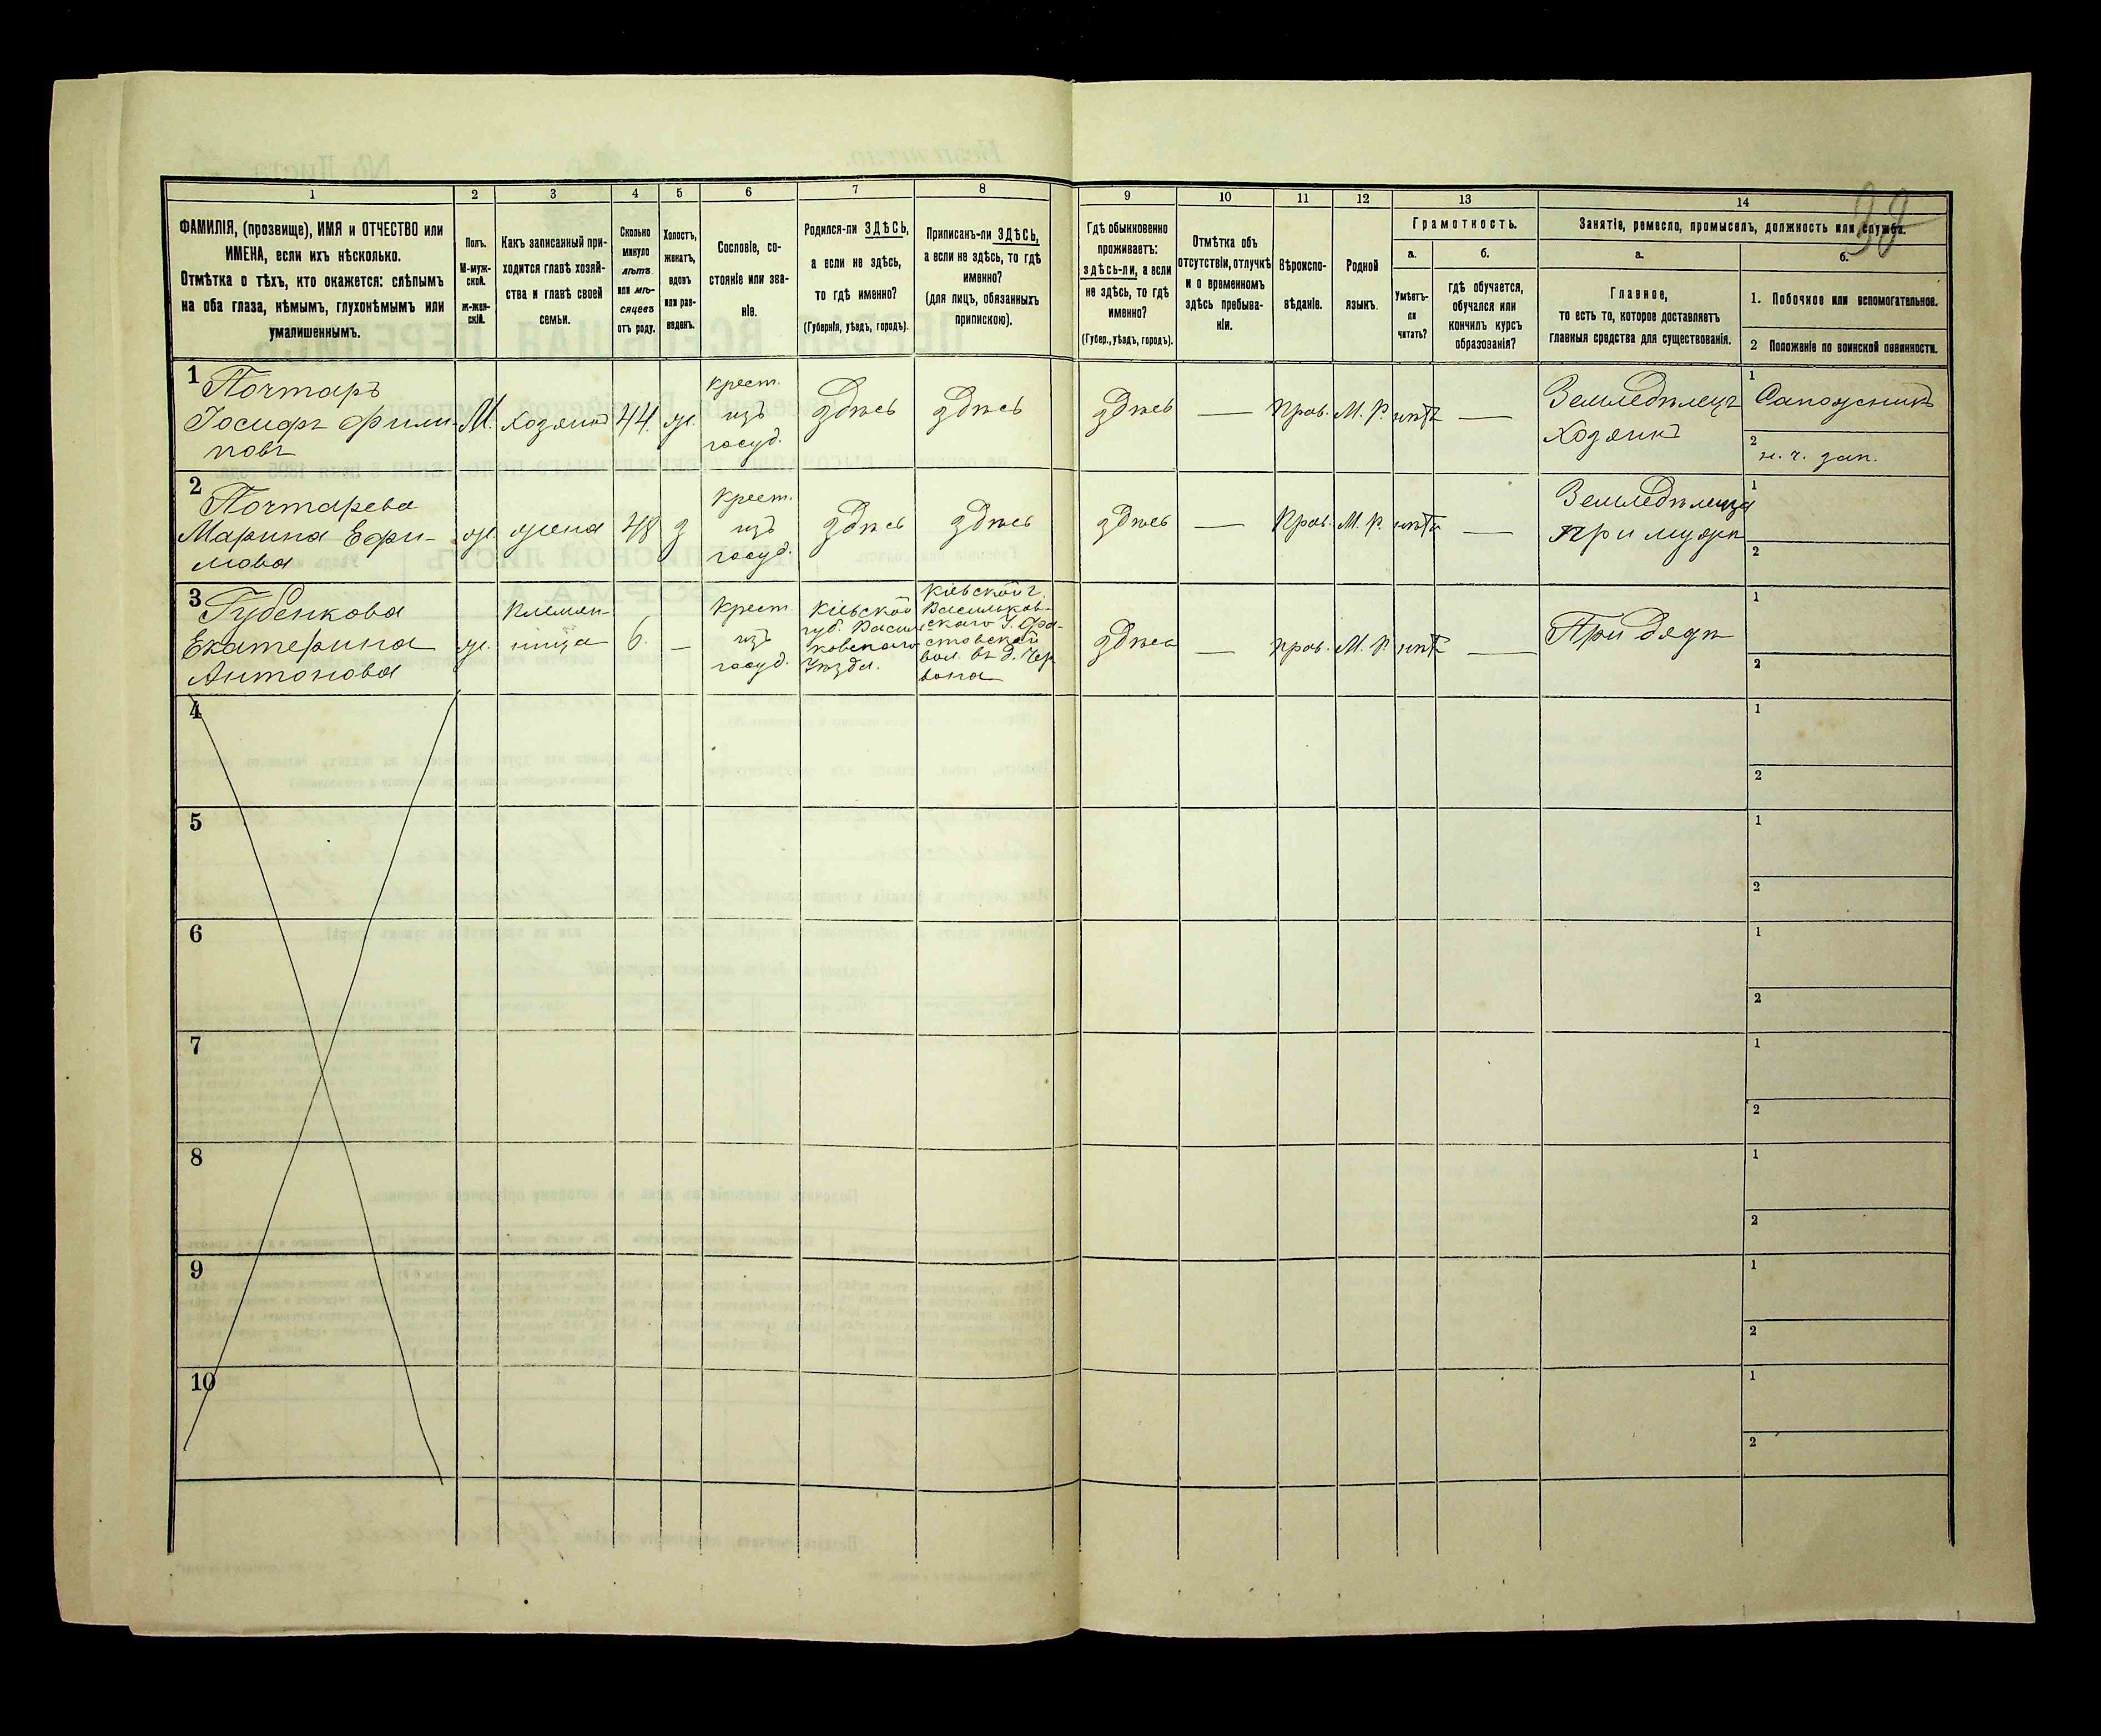 1 2 3 4 5 6 7 8 9 10 11 12 13 14
38
ФАМИЛІЯ, (прозвище), ИМЯ и ОТЧЕСТВО или
ИМЕНА, если ихъ нѣсколько.
Отмѣтка о тѣхъ, кто окажется: слѣпымъ
на оба глаза, нѣмымъ, глухонѣмымъ или
умалишеннымъ.
Полъ.
М-муж-
ской.
ж-жен-
скій.
Какъ записанный при-
ходится главѣ хозяй-
ства и главѣ своей
семьи.
Сколько
минуло
лѣтъ
или мѣ-
сяцевъ
отъ роду.
Холостъ,
женатъ,
вдовъ
или раз-
веденъ.
Сословіе, со-
стояніе или зва-
ніе.
Родился-ли ЗДѢСЬ,
а если не здѣсь,
то гдѣ именно?
(Губернія, уѣздъ, городъ).
Приписанъ-ли ЗДѢСЬ,
а если не здѣсь, то гдѣ
именно?
(для лицъ, обязанныхъ
припискою).
Гдѣ обыкновенно
проживаетъ:
здѣсь-ли, а если
не здѣсь, то гдѣ
именно?
(Губер., уѣздъ, городъ).
Отмѣтка объ
отсутствіи, отлучкѣ
и о временномъ
здѣсь пребыва-
ніи.
Вѣроиспо-
вѣданіе.
Родной
языкъ.
Грамотность.
а.
Умѣетъ-
ли
читать?
б.
гдѣ обучается,
обучался или
кончилъ курсъ
образованія?
Занятіе, ремесло, промыселъ, должность или служба.
а.
Главное,
то есть то, которое доставляетъ
главныя средства для существованія.
б.
1. Побочное или вспомогательное.
2 Положеніе по воинской повинности.
1
Почтаръ
Іосифъ Фили-
повъ
М.
хозяинъ
44.
ж.
крест.
изъ
госуд.
здѣсь
здѣсь
здѣсь
—
Прав.
М. Р.
нѣтъ
—
Земледѣлецъ
Хозяинъ
1
Сапожникъ
2
н. ч. зап.
2
Почтарева
Марина Ефи-
мова
ж.
жена
48
з
Крест.
изъ
госуд.
здѣсь
здѣсь
здѣсь
—
Прав.
М. Р.
нѣтъ
—
Земледѣлица
при мужѣ
1
2
3
Губенкова
Екатерина
Антонова
ж.
племян-
ница
6.
—
Крест
изъ
госуд.
Кіевской
губ. Василь
ковского
Уѣзда.
Кіевской г.
Васильков-
скаго У. Фа-
стовской
вол. въ д. Чер
вона
здѣсь
—
прав.
М. Р
нѣтъ
—
При дядѣ
1
2
4
1
2
5
1
2
6
1
2
7
1
2
8
1
2
9
1
2
10
1
2